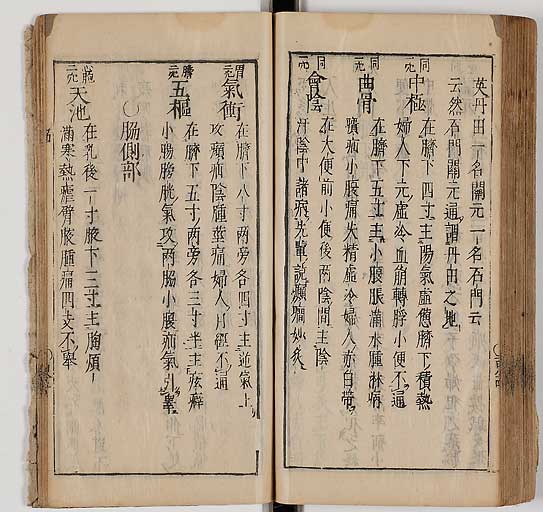 英丹田一名關元一名石門云
云然石門關元通謂丹田之地
同
穴
中極
在臍下四寸主陽氣虛憊臍下積熱
婦人下元虛冷血崩轉脬小便不通
同
穴
曲骨
在臍下五寸主小腹脹滿水腫淋病
㿉疝小腹痛失精虛冷婦人赤白帶
同
穴
會陰
在大便前小便後兩陰間主陰
汗陰中諸病先輩說
胃
穴
氣衝
在臍下八寸兩旁各四寸主逆氣上
攻㿉疝陰腫莖痛婦人月經不通
膽
穴
五樞
在臍下五寸兩旁各三寸半主痃癖
小腸膀胱氣攻兩脇小腹疝氣引
〇脇側部
心胞
穴
天池
在乳後一寸腋下三寸主胸煩
滿寒熱瘧臂腋腫痛四支不舉